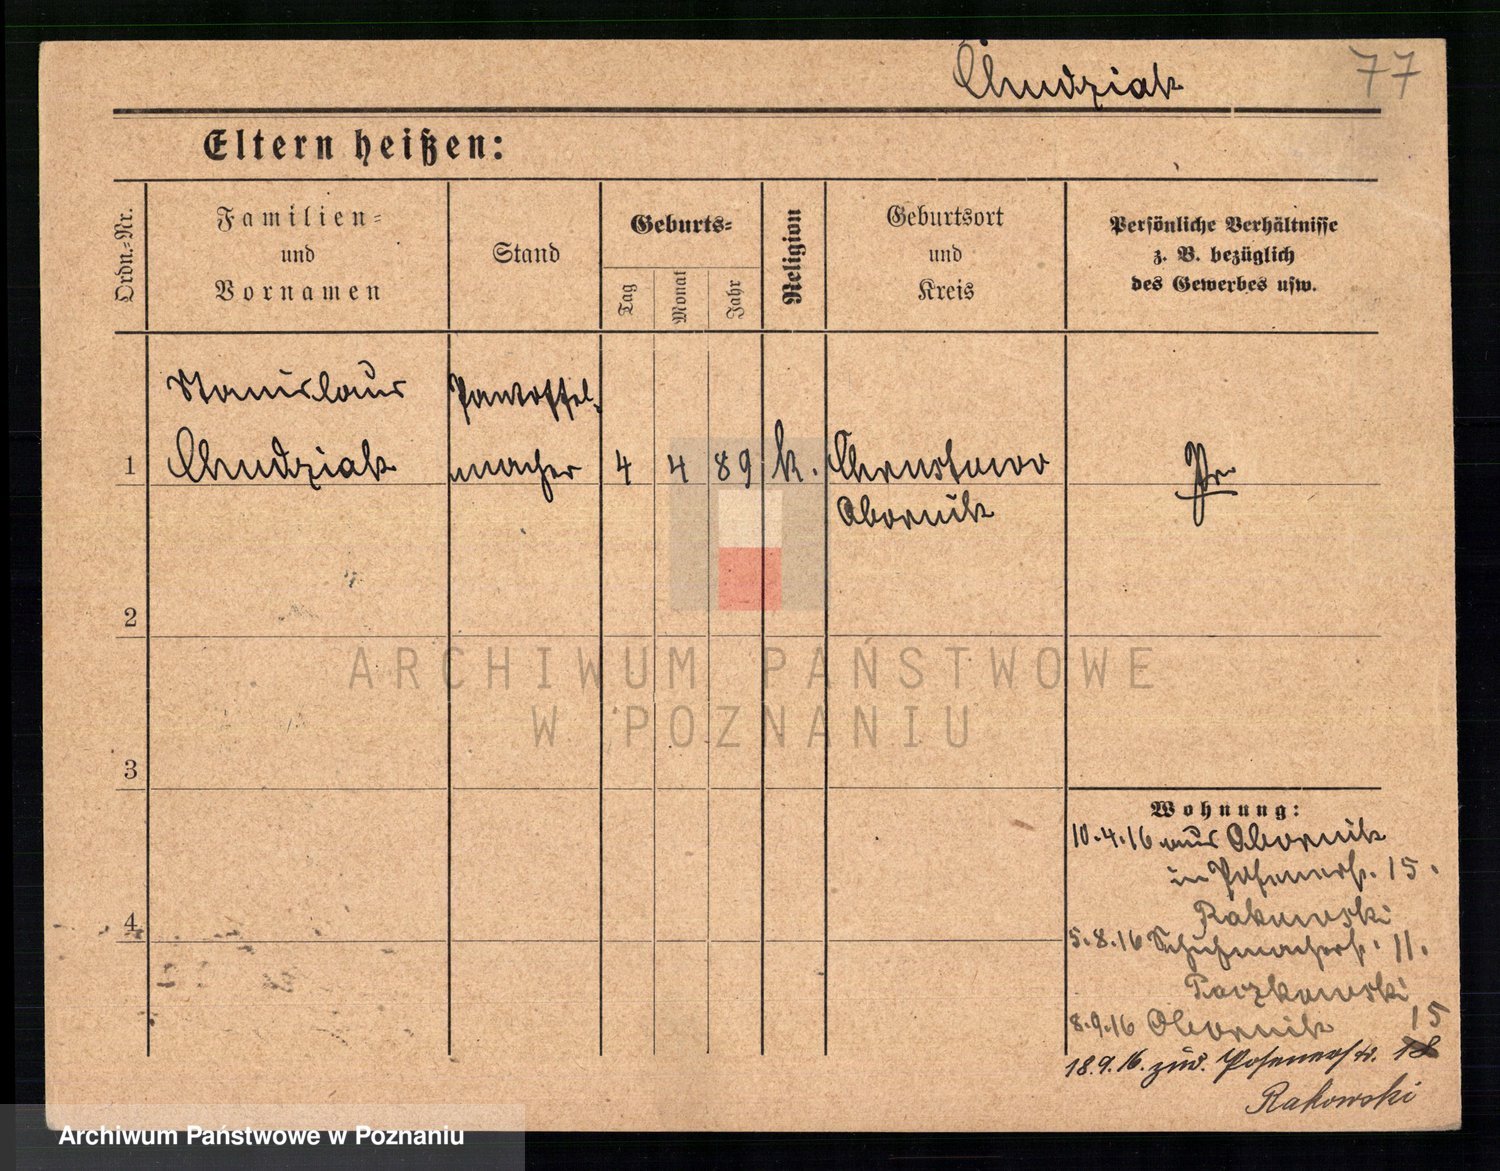 Chudziak
77
Eltern heißen:
Ordn.-Nr.
Familien-
und
Vornamen
Stand
Geburts-
Tag
Monat
Jahr
Religion
Geburtsort
und
Kreis
Persönliche Verhältnisse
z. B. bezüglich
des Gewerbes usw.
Stanislaus
Chudziak
Pantoffel-
macher
1
4
4
89
k.
Chrustowo
Obornik
Pr.
2
3
4
Wohnung:
10.4.16 aus Obornik
in Posenerst. 15.
Rakowski
5.8.16 Schuhmacherst. 11.
Paczkowski
8.9.16 Obornik
15
18.9.16. zur. Posenerstr. 18
Rakowski
ARCHIWUM PAŃSTWOWE
W POZNANIU
Archiwum Państwowe w Poznaniu